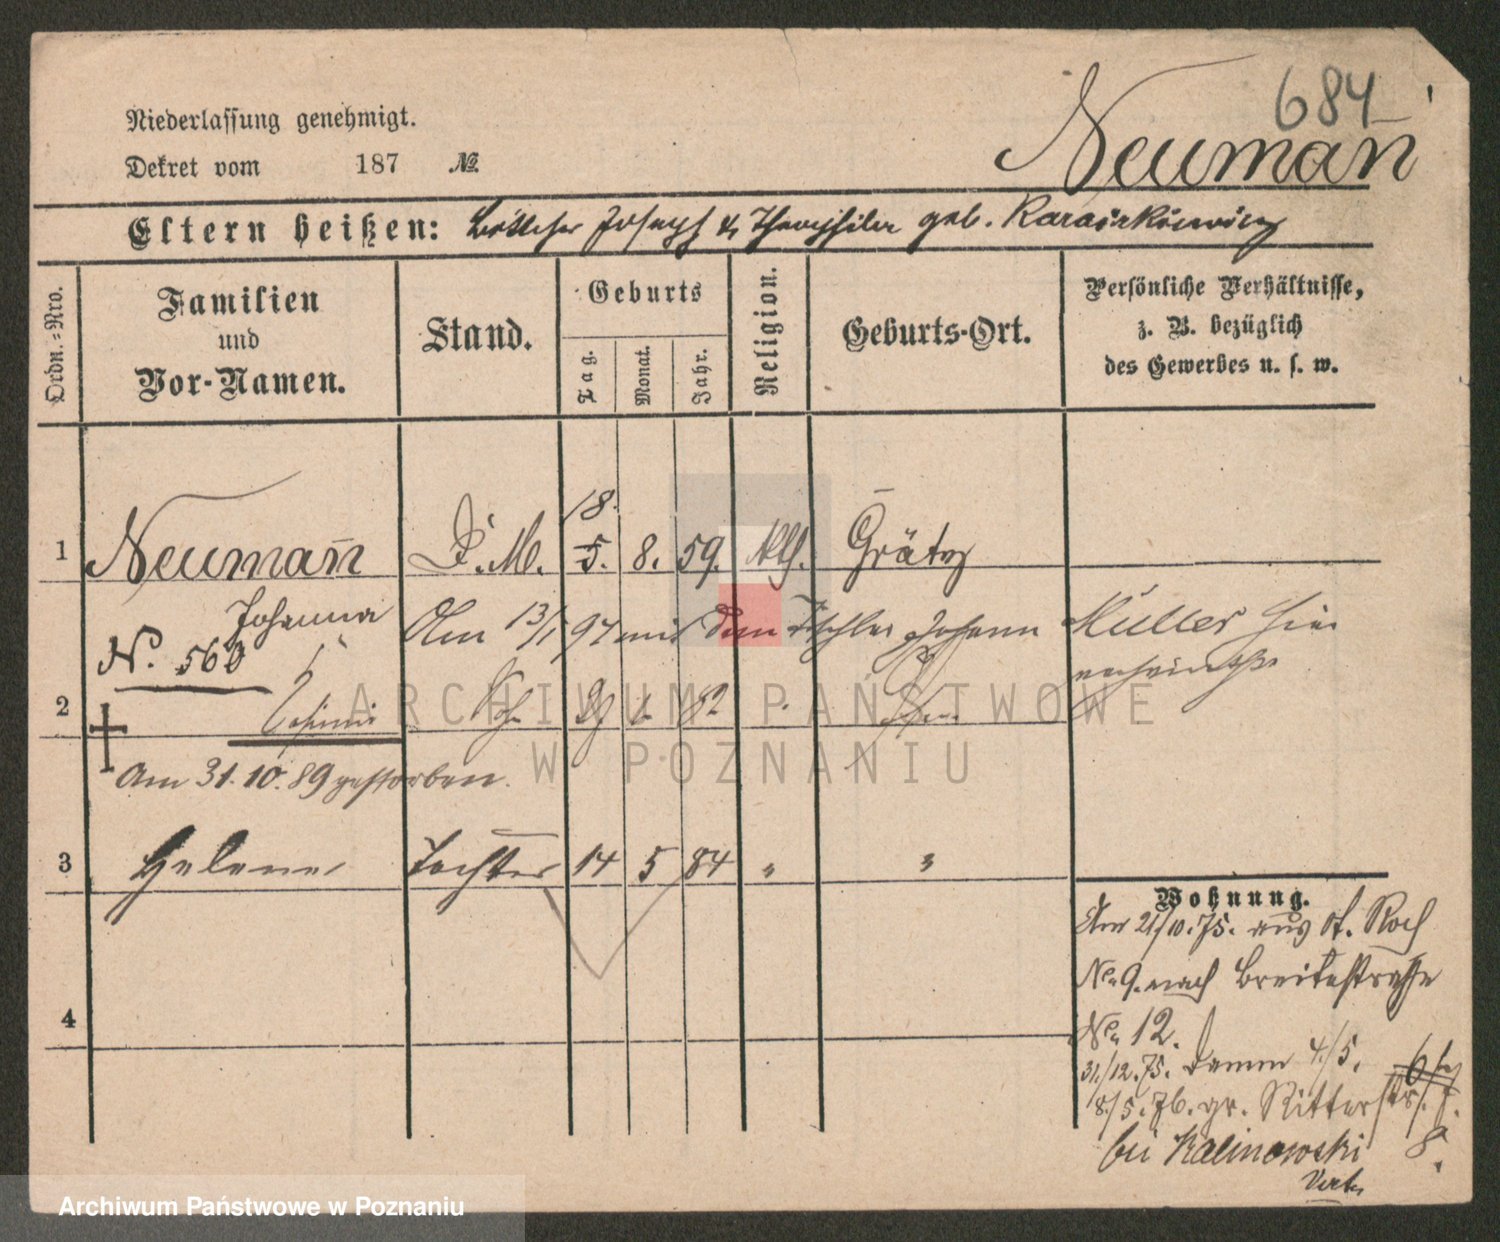 684
Neumañ
Niederlassung genehmigt.
Dekret vom 187 №
Eltern heißen: Böttcher Joseph & geb.
Ordn.-Nro.
Familien
und
Vor-Namen.
Stand.
Geburts
Tag.
Monat.
Jahr.
Religion.
Geburts-Ort.
Persönliche Verhältnisse,
z. B. bezüglich
des Gewerbes u. s. w.
18.
1 Neumañ D. M. 5. 8. 59. kth. Grätz
Johanna
Am 13/1 97 mit dem Tischler Johann Müller hier
verheirathet
N. 560
2 Casimir Sohn 29 82
Am 31.10.89 gestorben.
3 Helene Tochter 14 5 84 " "
4
Wohnung.
Am 21/10.75. aus St. Roch
No 9. nach Breitestrasse
No 12.
31/12.75. Damm 4/5.
8/5.76. gr. Ritterstr. 7.
bei Kalinowski 8.
ARCHIWUM PAŃSTWOWE
W POZNANIU
Archiwum Państwowe w Poznaniu